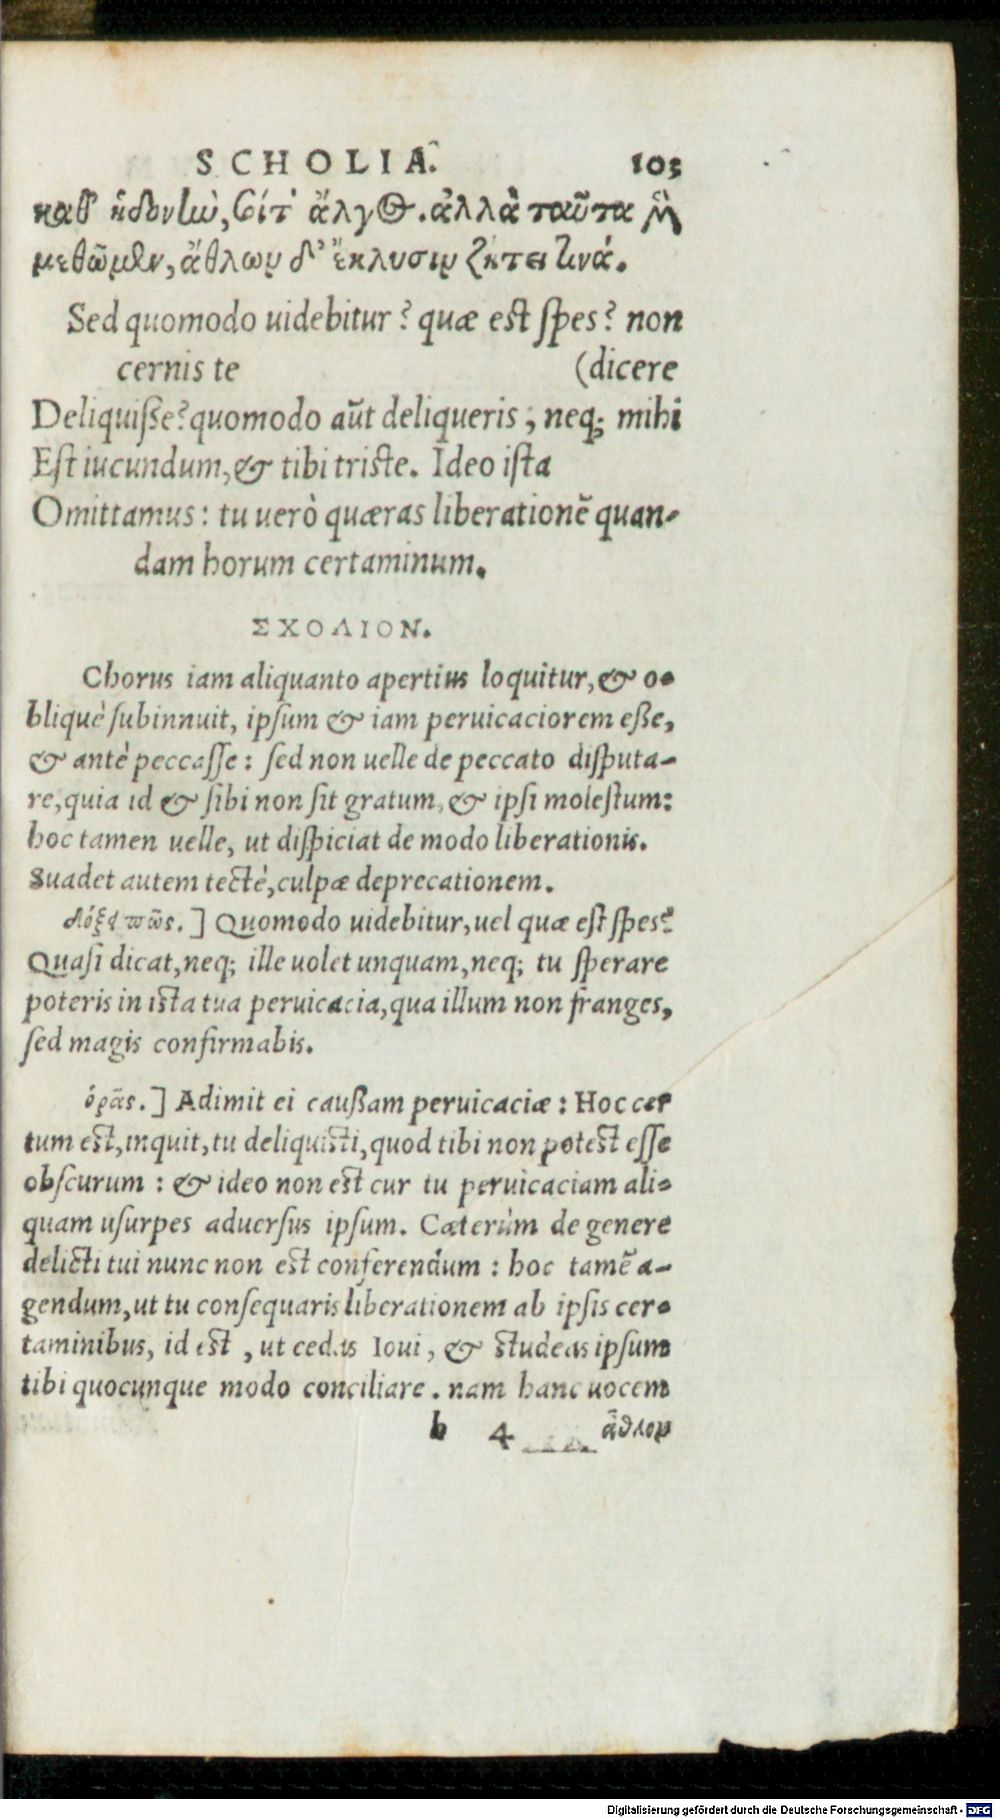 SCHOLIA. 103
καθ' ἡδονὴν, σοί τ' ἄλγος. ἀλλὰ ταῦτα μὲν
μεθῶμεν, ἄθλων δ' ἔκλυσιν ζήτει τινά.
Sed quomodo uidebitur? quæ est spes? non
cernis te (dicere
Deliquiſſe? quomodo aũt deliqueris, neq; mihi
Eſt iucundum, & tibi triste. Ideo iſta
Omittamus: tu uerò quæras liberationẽ quan-
dam horum certaminum.
ΣΧΟΛΙΟΝ.
Chorus iam aliquanto apertius loquitur, & o-
bliquè ſubinnuit, ipſum & iam peruicaciorem eſſe,
& antè peccaſſe: ſed non uelle de peccato diſputa-
re, quia id & ſibi non ſit gratum, & ipſi moleſtum:
hoc tamen uelle, ut diſpiciat de modo liberationis.
Suadet autem tectè, culpæ deprecationem.
δόξει πῶς.] Quomodo uidebitur, uel quæ eſt ſpes?
Quaſi dicat, neq; ille uolet unquam, neq; tu ſperare
poteris in iſta tua peruicacia, qua illum non franges,
ſed magis confirmabis.
ὁρᾷς.] Adimit ei cauſſam peruicaciæ: Hoc cer
tum eſt, inquit, tu deliquiſti, quod tibi non poteſt eſſe
obſcurum: & ideo non eſt cur tu peruicaciam ali-
quam uſurpes aduerſus ipſum. Cæterùm de genere
delicti tui nunc non eſt conferendum: hoc tamẽ a-
gendum, ut tu conſequaris liberationem ab ipſis cer-
taminibus, id eſt, ut cedas Ioui, & ſtudeas ipſum
tibi quocunque modo conciliare. nam hanc uocem
h 4 ἄθλον
Digitalisierung gefördert durch die Deutsche Forschungsgemeinschaft - DFG